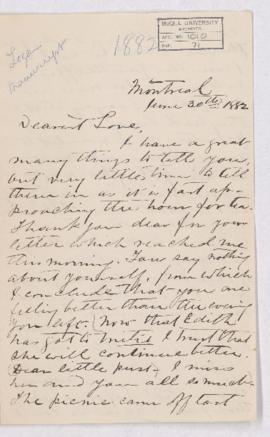 McGILL UNIVERSITY
ARCHIVES
ACC. NO. 1010
REF. 71
1882
Logan
transcript
Montreal
June 30th 1882
Dearest Love,
I have a great
many things to tell you,
but very little time to tell
them in as it is fast ap-
proaching the hour for tea.
Thank you dear for your
letter which reached me
this morning. You say nothing
about yourself, from which
I conclude that you are
feeling better than the evening
you left. Now that Edith
has got to Metis I trust that
she will continue better.
Dear little puss, I miss
her and you all so much.
The picnic came off last